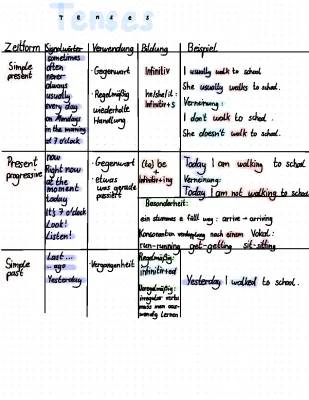 Tenses
Tenses
Zeitform
Signalwörter
Verwendung
Bildung
Beispiel
Simple
present
sometimes
often
never
always
usually
every day
on Mondays
in the morning
at 7 o'clock
· Gegenwart
· Regelmäßig
wiederholte
Handlung
Infinitiv
he/she/it:
Infinitiv+s
I usually walk to school
She usually walks to school.
Verneinung:
I don't walk to school.
She doesn't walk to school.
Present
progressive
now
Right now
at the
moment
today
it's 7 o'clock
Look!
Listen!
· Gegenwart
· etwas
was gerade
passiert
(to) be
+
Infinitiv+ing
Today I am walking to school
Verneinung:
Today I am not walking to school
Besonderheit:
ein stummes e fällt weg: arrive → arriving
Konsonanten verdopplung nach einem Vokal:
run-running get-getting sit-sitting
Simple
past
Last ...
... ago
Yesterday
· Vergangenheit
Regelmäßig:
infinitiv+ed
Unregelmäßig:
irregular verbs
muss man aus-
wendig lernen
Yesterday I walked to school.